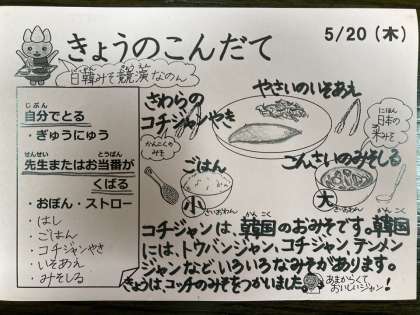 きょうのこんだて
5/20(木)
日韓みそ競演なのん
じぶん
自分でとる
・ぎゅうにゅう
せんせい とうばん
先生またはお当番が
くばる
・おぼん・ストロー
・はし
・ごはん
・コチジャンやき
・いそあえ
・みそしる
さわらの
コチジャンやき
かんこくのみそ
やさいのいそあえ
にほん
日本の
米みそ
ごはん
小
さいおわん
ごんさいのみそしる
大
さいおわん
かんこく
コチジャンは、韓国のおみそです。韓国
には、トウバンジャン、コチジャン、テンメン
ジャンなど、いろいろなみそがあります。
きょうは、コッチのみそをつかいました。
あまからくて
おいしいジャン!